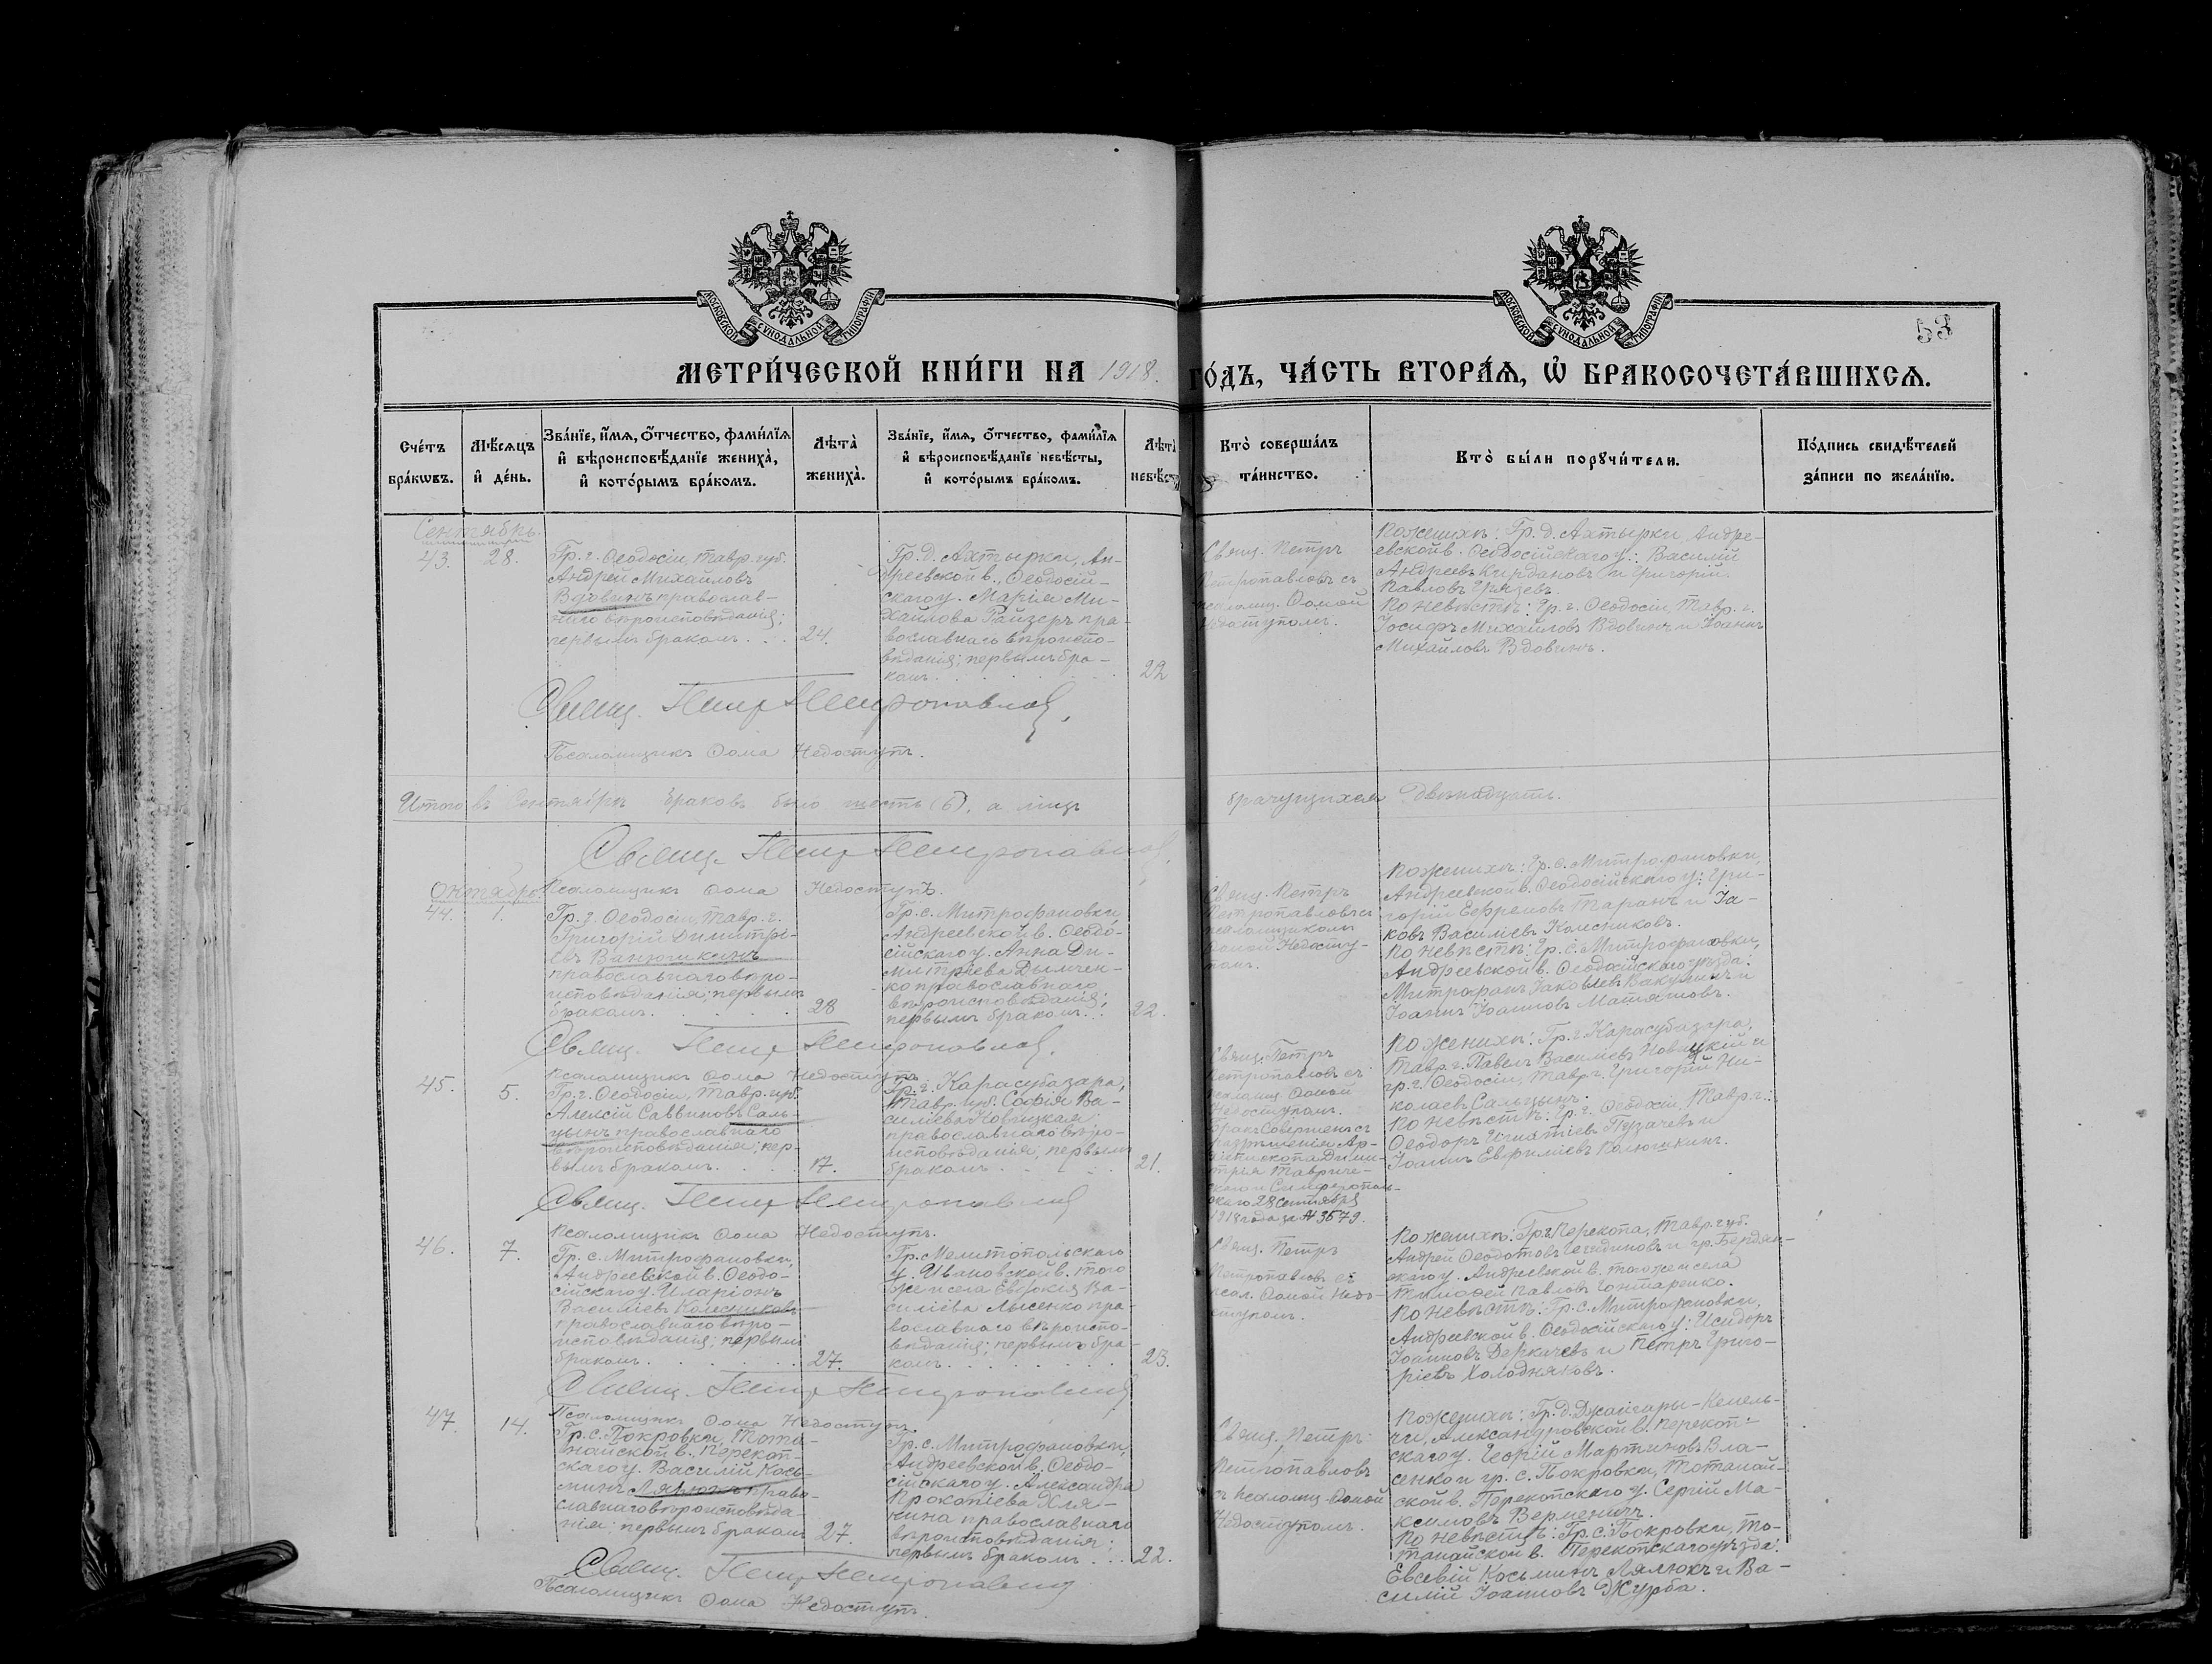 МОСКОВСКОЙ СѴНОДАЛЬНОЙ ТИПОГРАФІИ
МОСКОВСКОЙ СѴНОДАЛЬНОЙ ТИПОГРАФІИ
53
МЕТРИ́ЧЕСКОЙ КНИ́ГИ НА 1918. ГО́ДЪ, ЧА́СТЬ ВТОРА́Я, Ѡ҆ БРАКОСОЧЕТА́ВШИХСЯ.
Сче́тъ
бра́кѡвъ.
Мѣ́сяцъ
и҆ де́нь.
Зва́нїе, и҆́мя, о҆́тчество, фами́лїя
и҆ вѣроисповѣ́данїе жениха̀,
и҆ кото́рымъ бра́комъ.
Лѣта̀
жениха̀.
Зва́нїе, и҆́мя, о҆́тчество, фами́лїя
и҆ вѣроисповѣ́данїе невѣ́сты,
и҆ кото́рымъ бра́комъ.
Лѣта̀
невѣ́сты
Кто̀ соверша́лъ
та́инство.
Кто̀ бы́ли порꙋчи́тели.
По́дпись свидѣ́телей
за́писи по жела́нїю.
Сентябрь.
43.
28.
Гр. г. Ѳеодосіи, Тавр. губ.
Андрей Михайловъ
Вдовинъ православ-
наго вѣроисповѣданія;
первымъ бракомъ. . .
24.
Гр. д. Ахтырки, Ан-
дреевской в., Ѳеодосій-
скаго у. Марія Ми-
хайлова Райзеръ пра-
вославнаго вѣроиспо-
вѣданія; первымъ бра-
комъ. . . . . . .
22
Свящ. Петръ
Петропавловъ съ
псаломщ. Ѳомой
Недоступомъ.
По женихѣ: Гр. д. Ахтырки, Андре-
евской в. Ѳеодосійскаго у.: Василій
Андреевъ Кирдановъ и Григорій
Павловъ Князевъ.
По невѣстѣ: Гр. г. Ѳеодосіи, Тавр. г.
Іосифъ Михайловъ Вдовинъ и Іоаннъ
Михайловъ Вдовинъ.
Свящ. Петр Петропавлов,
Псаломщикъ Ѳома Недоступъ.
Итого въ Сентябрѣ браковъ было шесть (6), а лицъ брачущихся двѣнадцать.
Свящ. Петр Петропавлов,
Псаломщикъ Ѳома Недоступъ.
Октябрь.
44.
1.
Гр. г. Ѳеодосіи, Тавр. г.
Григорій Димитрі-
евъ Ванюшкинъ
православнаго вѣро-
исповѣданія; первымъ
бракомъ. . . . . .
28
Гр. с. Митрофановки
Андреевской в. Ѳеодо-
сійскаго у. Анна Ди-
митріева Дымчен-
ко православнаго
вѣроисповѣданія;
первымъ бракомъ. . .
22.
Свящ. Петръ
Петропавловъ съ
псаломщикомъ
Ѳомой Недосту-
помъ.
По женихѣ: Гр. с. Митрофановки,
Андреевской в. Ѳеодосійскаго у.: Гри-
горій Ефремовъ Таранъ и Іа-
ковъ Василіевъ Колесниковъ.
По невѣстѣ: Гр. с. Митрофановки,
Андреевской в. Ѳеодосійскаго уѣзда:
Митрофанъ Іаковлевъ Вакулинъ и
Іоаннъ Іоанновъ Матяшовъ.
Свящ. Петр Петропавлов.
Псаломщикъ Ѳома Недоступъ
45.
5.
Гр. г. Ѳеодосіи, Тавр. губ.
Алексій Саввиновъ Саль-
цынъ православнаго
вѣроисповѣданія; пер-
вымъ бракомъ. . . . .
17.
Гр. г. Карасубазара,
Тавр. губ. Софія Ва-
силіева Новицкая
православнаго вѣро-
исповѣданія, первымъ
бракомъ . . . . .
21.
Свящ. Петръ
Петропавловъ съ
псаломщ. Ѳомой
Недоступомъ.
Бракъ совершенъ съ
разрѣшенія Ар-
хіепископа Дими-
трія Тавриче-
скаго и Симферополь-
скаго 28 Сентября
1918 года за № 3579.
По женихѣ: Гр. г. Карасубазара,
Тавр. г. Павелъ Василіевъ Новицкій и
гр. г. Ѳеодосіи, Тавр. г. Григорій Ни-
колаевъ Сальцынъ.
По невѣстѣ: Гр. г. Ѳеодосіи, Тавр. г.:
Ѳеодоръ Игнатіевъ Пузачевъ и
Іоаннъ Евфиміевъ
Свящ. Петр Петропавлов
Псаломщикъ Ѳома Недоступъ.
46.
7.
Гр. с. Митрофановки,
Андреевской в. Ѳеодо-
сійскаго у. Иларіонъ
Василіевъ Колесниковъ
православнаго вѣро-
исповѣданія; первымъ
бракомъ . . . . . .
27.
Гр. Мелитопольскаго
у. Ивановской в. того
же села Евдокія Ва-
силіева Лысенко пра-
вославнаго вѣроиспо-
вѣданія; первымъ бра-
комъ. . . . . . . .
23.
Свящ. Петръ
Петропавловъ съ
псал. Ѳомой Недо-
ступомъ.
По женихѣ: Гр. г. Перекопа, Тавр. губ.
Андрей Ѳеодотовъ и гр. Бердян-
скаго у. Андреевской в. того же села
Тимоѳей Павловъ Гонтаренко.
По невѣстѣ: Гр. с. Митрофановки,
Андреевской в. Ѳеодосійскаго у.: Исидоръ
Іоанновъ Деркачевъ и Петръ Григо-
ріевъ Холодняковъ.
Свящ. Петр Петропавлов
Псаломщикъ Ѳома Недоступъ
47.
14.
Гр. с. Покровки, Тота-
найской в. Перекоп-
скаго у. Василій Кось-
минъ Лялюкъ право-
славнаго вѣроисповѣда-
нія; первымъ бракомъ
27.
Гр. с. Митрофановки,
Андреевской в. Ѳеодо-
сійскаго у. Александра
Прокопіева Хля-
нина православнаго
вѣроисповѣданія;
первымъ бракомъ . . .
22.
Свящ. Петръ
Петропавловъ
съ псаломщ. Ѳомой
Недоступомъ.
По женихѣ: Гр. д. Джайчары-Кенель-
чи, Александровской в. Перекоп-
скаго у. Георгій Мартиновъ Вла-
сенко и гр. с. Покровки, Тотанай-
ской в. Перекопскаго у. Сергій Ма-
ксимовъ Верменичъ.
По невѣстѣ: Гр. с. Покровки, То-
танайской в. Перекопскаго уѣзда:
Евсевій Косьминъ Лялюкъ и Ва-
силій Іоанновъ Журба.
Свящ. Петр Петропавлов
Псаломщикъ Ѳома Недоступъ.